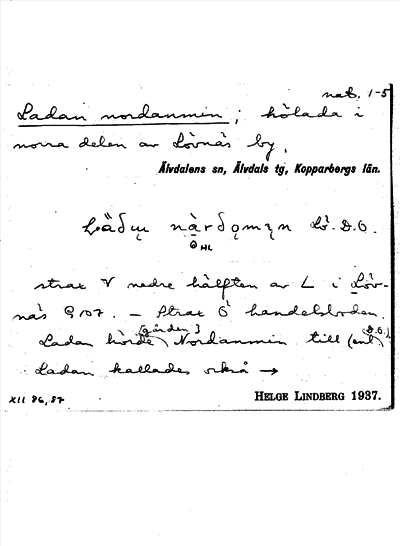 nat. 1-5
Ladan nordanmin ; hölada i
norra delen av Lövnäs by.
Älvdalens sn, Älvdals tg, Kopparbergs län.
Lö. D.O.
HL
strax V nedre hälften av L i Löv-
näs 9107. – Strax Ö handelsboden.
Ladan hörde (gården) Nordanmin till (enl. D.O.)
Ladan kallades också →
XII 86,87
HELGE LINDBERG 1937.